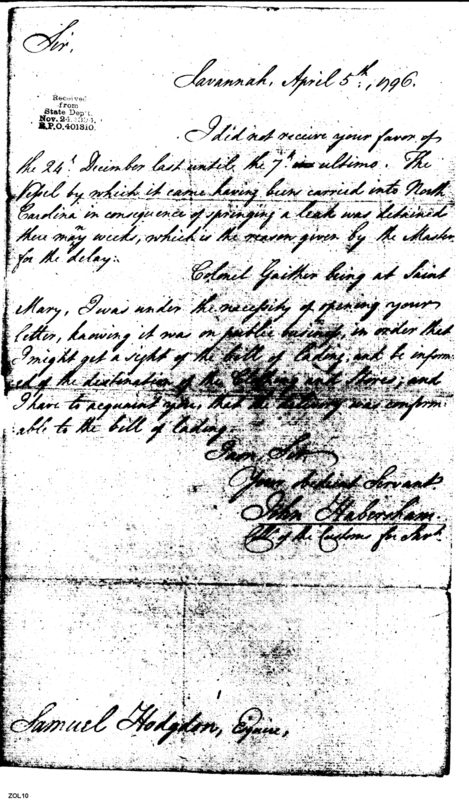 Sir,
Savannah, April 5th, 1796.
Received
from
State Dep't.
Nov. 24, 1894.
R.P.O. 401310.
I did not receive your favor of
the 24th December last until the 7th ultimo. The
Vessel by which it came having been carried into North
Carolina in consequence of springing a leak was detained
there many weeks, which is the reason given by the Master
for the delay.
Colonel Gaither being at Saint
Mary, I was under the necessity of opening your
letter, knowing it was on public business, in order that
I might get a sight of the bill of lading, and be inform-
ed of the destination of the Clothing and Stores; and
I have to acquaint you, that the delivery was conform-
able to the bill of lading.
I am, Sir
Your obedient Servant
John Habersham.
Coll. of the Customs for Savh.
Samuel Hodgdon, Esquire,
ZOL10